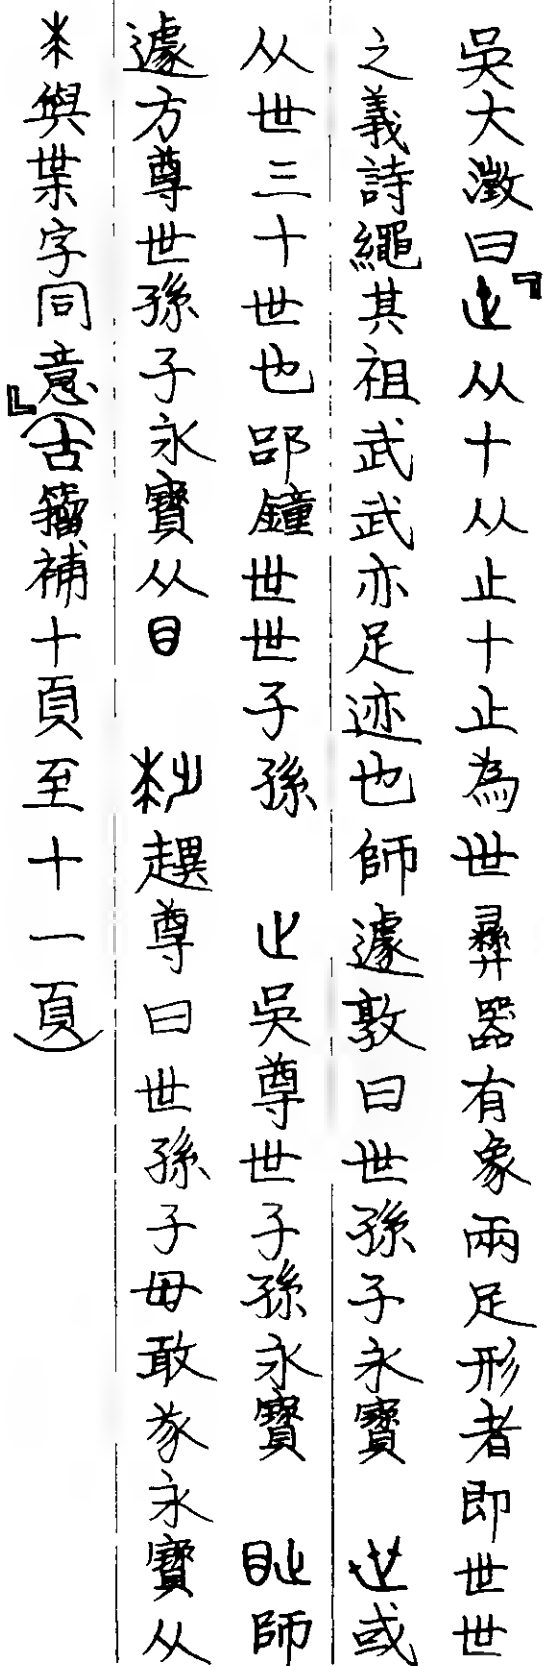 吳大澂曰『𠀍从十从止十止為世彞器有象兩足形者即世世
之義詩繩其祖武武亦足迹也師遽敦曰世孫子永寶 或
从世三十世也郘鐘世世子孫 吳尊世子孫永寶 師
遽方尊世孫子永寶从目 趩尊曰世孫子毋敢㒸永寶从
木與枼字同意』（古籀補十頁至十一頁）